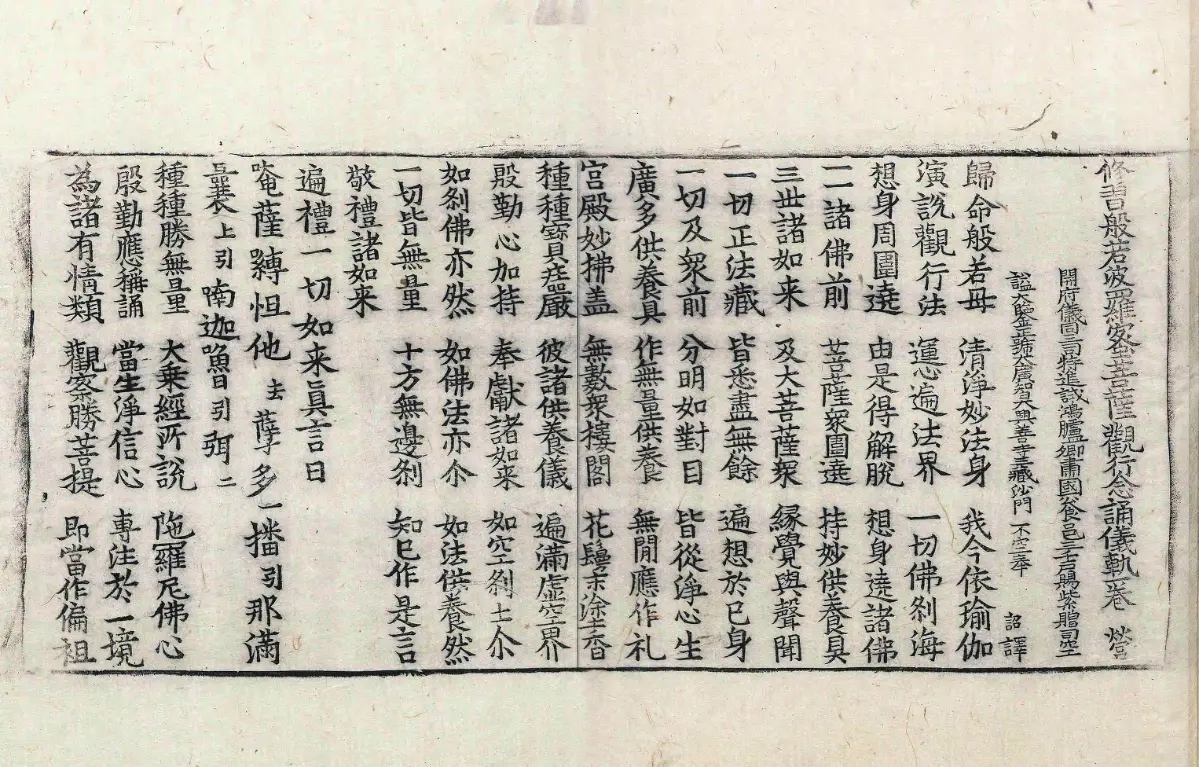 修習般若波羅蜜菩薩觀行念誦儀軌一卷 營
開府儀同三司特進試鴻臚卿肅國公食邑三千戶賜紫贈司空
謚大鑒正號大廣智大興善寺三藏沙門 不空奉 詔譯
歸命般若母 清淨妙法身 我今依瑜伽
演說觀行法 運心遍法界 一切佛刹海
想身周圍遶 由是得解脫 想身遶諸佛
一一諸佛前 菩薩衆圍遶 持妙供養具
三世諸如来 及大菩薩衆 緣覺與聲聞
一切正法藏 皆悉盡無餘 遍想於己身
一切及衆前 分明如對目 皆從淨心生
廣多供養具 作無量供養 無閒應作礼
宮殿妙拂盖 無數衆樓閣 花鬘末塗香
種種寶莊嚴 彼諸供養儀 遍滿虛空界
殷勤心加持 奉獻諸如来 如空刹土尒
如刹佛亦然 如佛法亦尒 如法供養然
一切皆無量 十方無邊刹 知已作是言
敬禮諸如来
遍禮一切如来真言曰
唵薩嚩怛他 去 孽多 一 播 引 那滿
曩 上引 喃迦嚕 引 弭 二
種種勝無量 大乗經所說 陁羅尼佛心
殷勤應稱誦 當生淨信心 專注於一境
為諸有情類 觀察勝菩提 即當作偏袒